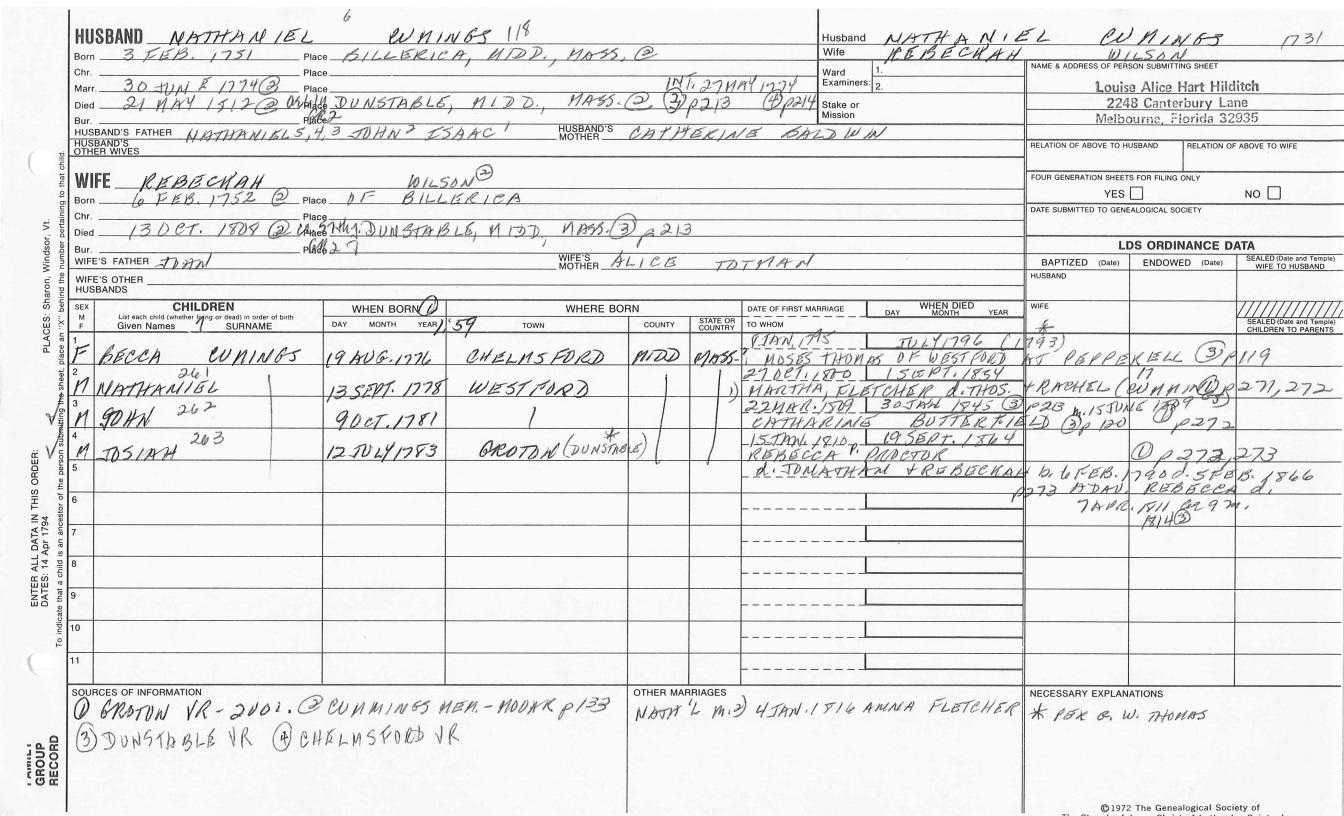 6
HUSBAND NATHANIEL CUMINGS 118
Born 3 FEB. 1751 Place BILLERICA, MIDD., MASS. ②
Chr. Place
Marr. 30 JUNE 1774 ③ Place INT. 27 MAY 1774
Died 21 MAY 1812 ② Place DUNSTABLE, MIDD., MASS. ② ③ p213 ④ p214
Bur. Place
HUSBAND'S FATHER NATHANIEL 5,4,3 JOHN 2 ISAAC 1 HUSBAND'S MOTHER CATHERINE BALDWIN
HUSBAND'S OTHER WIVES
WIFE REBECKAH WILSON ②
Born 6 FEB. 1752 ② Place OF BILLERICA
Chr. Place
Died 13 OCT. 1808 ② Place DUNSTABLE, MIDD, MASS. ③ p213
Bur. Place
WIFE'S FATHER JOHN WIFE'S MOTHER ALICE TOTMAN
WIFE'S OTHER HUSBANDS
Husband NATHANIEL CUMINGS 1731
Wife REBECKAH WILSON
Ward Examiners: 1.
2.
Stake or Mission
NAME & ADDRESS OF PERSON SUBMITTING SHEET
Louise Alice Hart Hilditch
2248 Canterbury Lane
Melbourne, Florida 32935
RELATION OF ABOVE TO HUSBAND RELATION OF ABOVE TO WIFE
FOUR GENERATION SHEETS FOR FILING ONLY
YES NO
DATE SUBMITTED TO GENEALOGICAL SOCIETY
LDS ORDINANCE DATA
BAPTIZED (Date) ENDOWED (Date) SEALED (Date and Temple) WIFE TO HUSBAND
HUSBAND
WIFE
SEALED (Date and Temple) CHILDREN TO PARENTS
SEX M F
CHILDREN
List each child (whether living or dead) in order of birth
Given Names 7 SURNAME
WHEN BORN ①
DAY MONTH YEAR
WHERE BORN
TOWN COUNTY STATE OR COUNTRY
DATE OF FIRST MARRIAGE
TO WHOM
WHEN DIED
DAY MONTH YEAR
1 F BECCA CUMINGS 19 AUG. 1776 CHELMSFORD MIDD MASS. JULY 1796 (1793)
MOSES THOMAS OF WESTFORD AT PEPPERELL ③ p119
2 M NATHANIEL 261 13 SEPT. 1778 WESTFORD 27 OCT. 1800 1 SEPT. 1854
1) MARTHA FLETCHER d. THOS. + RACHEL p271, 272
3 M JOHN 262 9 OCT. 1781 22 MAR. 1809 30 JAN 1845 ③ p213 m. 15 JUNE 1809
CATHARINE BUTTERFIELD ③ p120 ① p272
4 M JOSIAH 263 12 JULY 1783 GROTON (DUNSTABLE) * 15 JAN. 1810 19 SEPT. 1864
REBECCA P. PROCTOR ① p272, 273
d. JONATHAN + REBECKAH b. 6 FEB. 1790 d. 5 FEB. 1866
5 p273 REBECCA d.
7 APR. 1811 9 m.
1814 ③
6
7
8
9
10
11
SOURCES OF INFORMATION
① GROTON VR - ② CUMMINGS MEM. - MOOAR p133
③ DUNSTABLE VR ④ CHELMSFORD VR
OTHER MARRIAGES
NATH'L m. 2) 4 JAN. 1816 ANNA FLETCHER
NECESSARY EXPLANATIONS
* PER G. W. THOMAS
©1972 The Genealogical Society of
ENTER ALL DATA IN THIS ORDER:
DATES: 14 Apr 1794
PLACES: Sharon, Windsor, Vt.
To indicate that a child is an ancestor of the person submitting the sheet, place an "X" behind the number pertaining to that child.
FAMILY GROUP RECORD